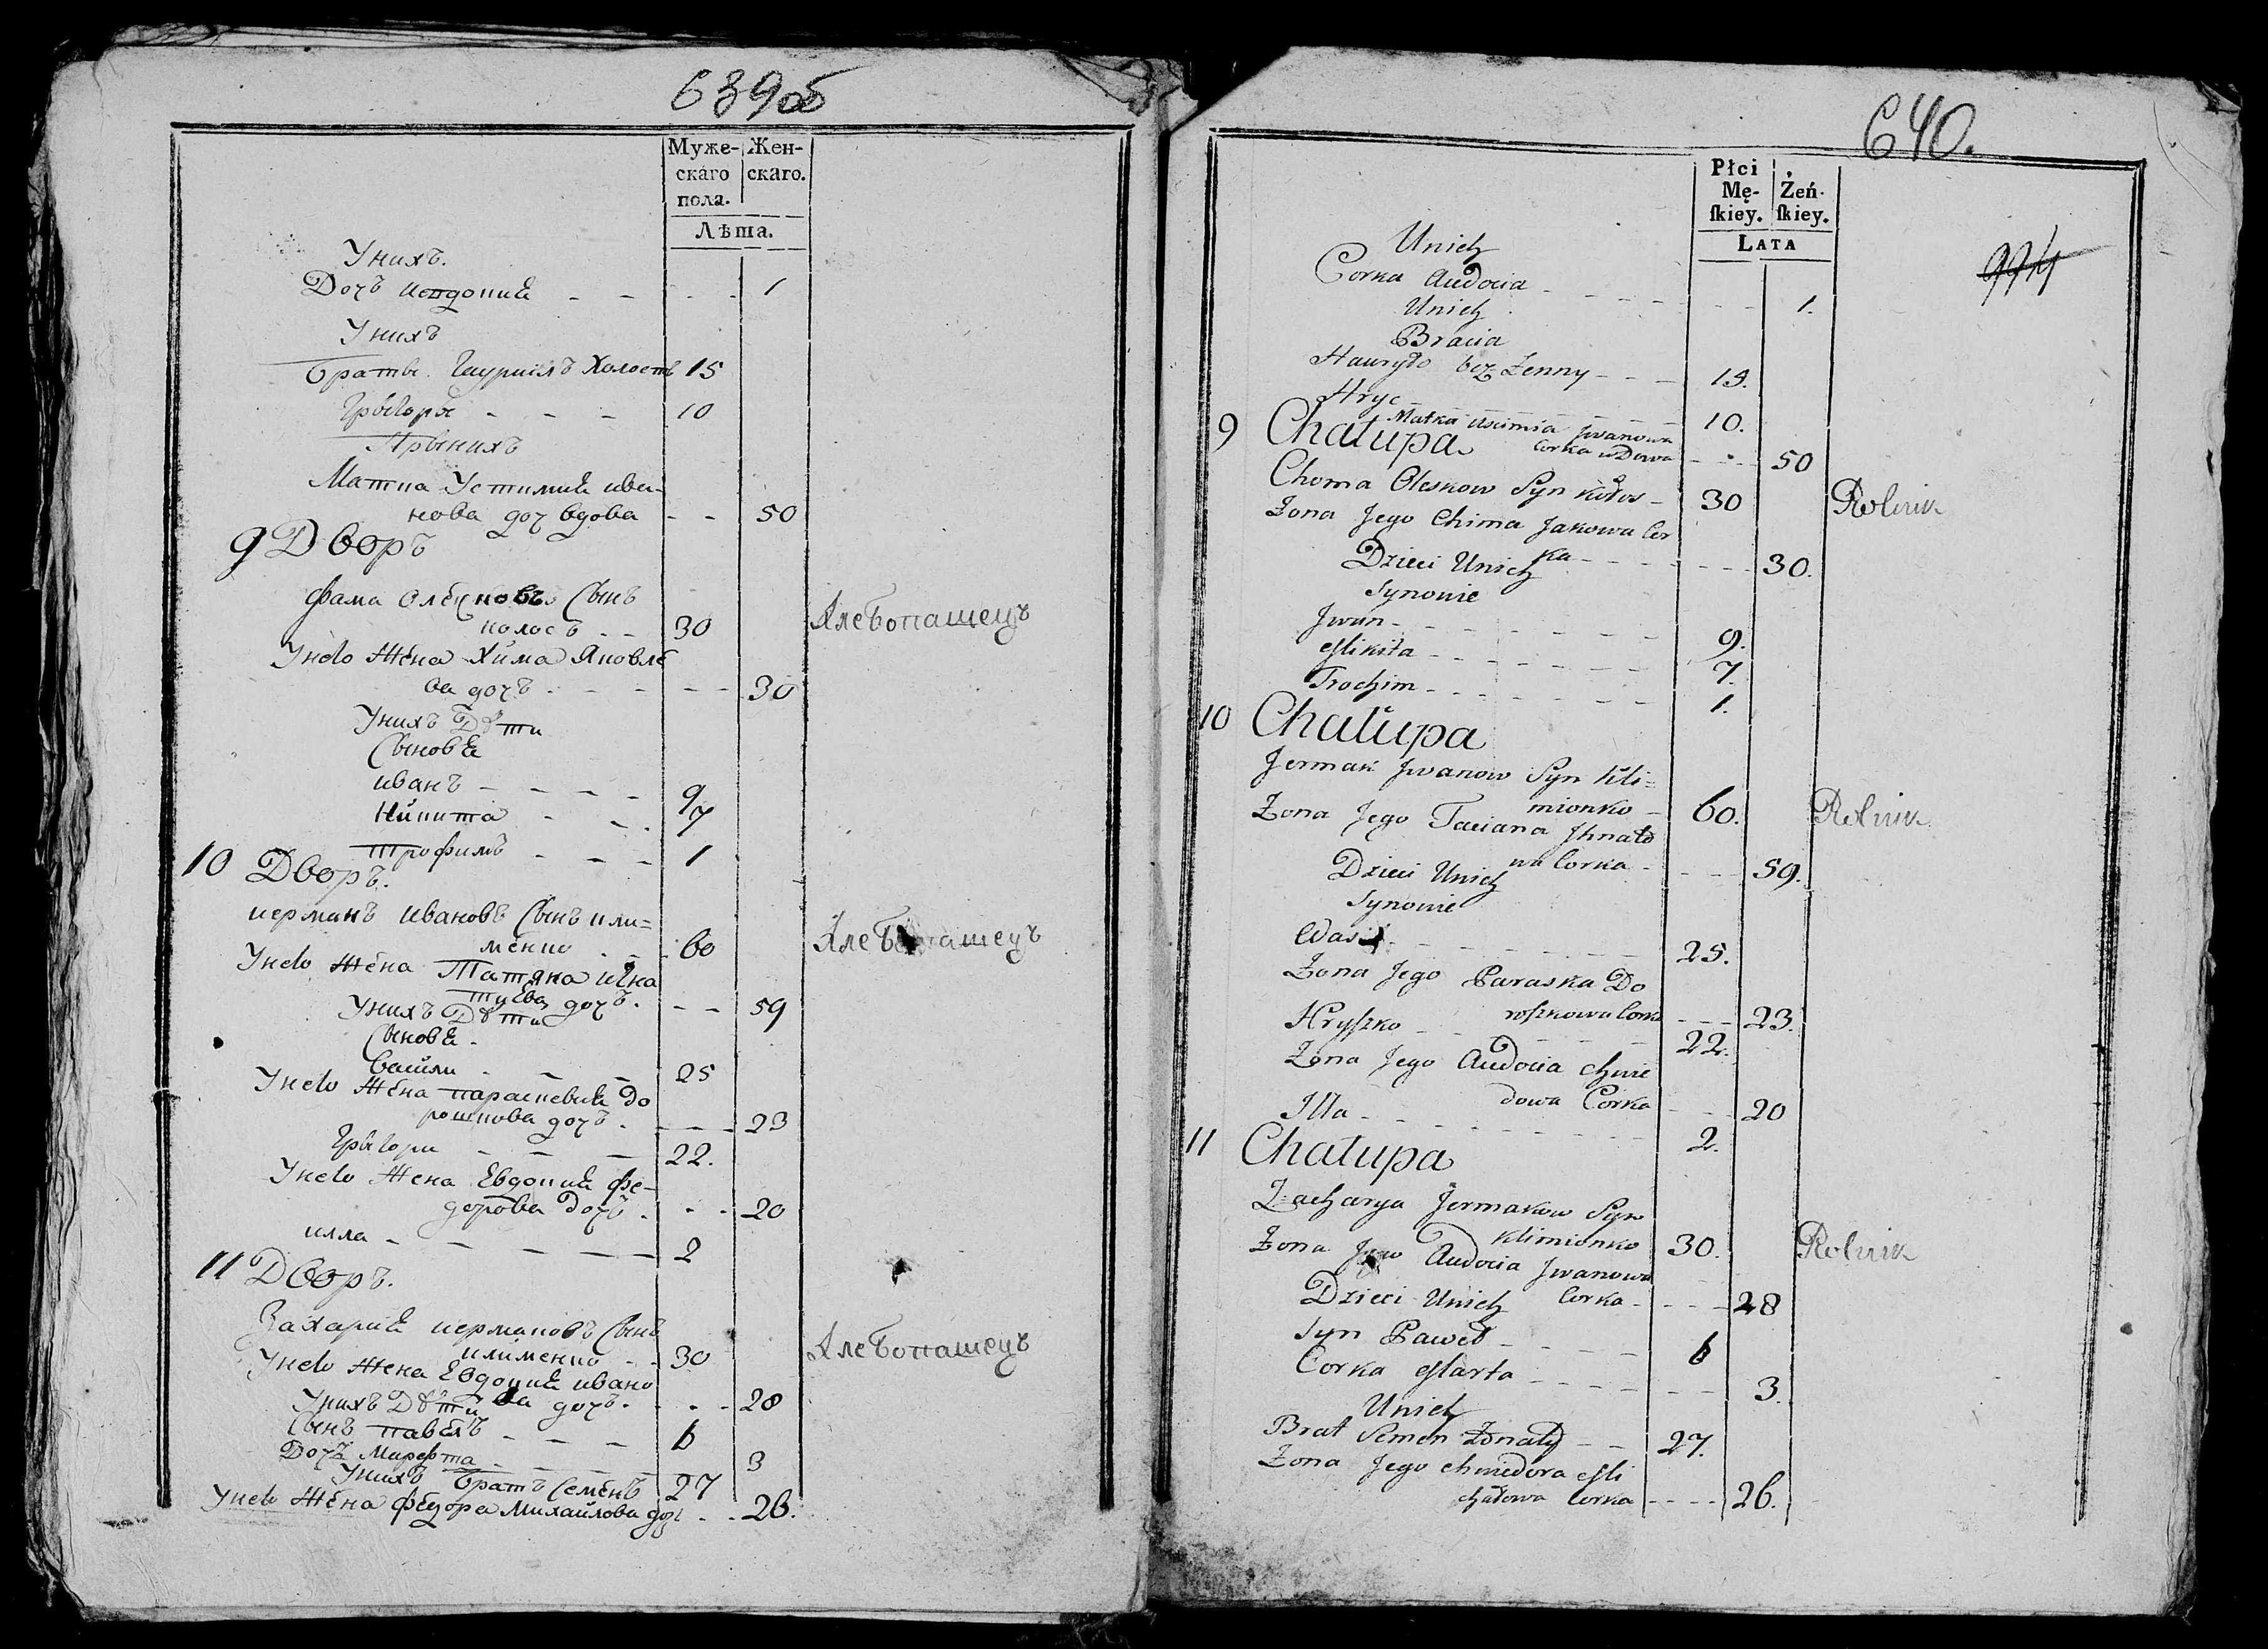 639об
Муже-
скаго
пола.
Жен-
скаго.
Лѣта.
Унихъ.
Дочъ Иевдокия - - - - 1
Унихъ
братьи Гаурилъ Холостъ 15
Грыгоры - - - 10
Прыникъ
Матка Устимия ива-
нова доч вдова - - 50
9 Дворъ
фама Олексковъ Сынъ
колосъ - - 30 Хлебопашецъ
Унего Жена Хима Яковле
ва дочъ - - - - - 30
Унихъ Дѣти
Сыновя
иванъ - - - - 9
Никита - - 7
трофимъ - - - 1
10 Дворъ.
иермакъ ивановъ Сынъ кли=
менко - - 60 Хлебопашецъ
Унего Жена Татяна игна
туева дочъ. - - 59
Унихъ Дѣти
Сыновя -
Васили - - - 25
Унего Жена параскевия до
рошкова дочъ - - - - 23
Грыгори - - - 22.
Унего Жена Евдокия фе-
дорова Дочъ - - - 20
илла - - - - - 2
11 Дворъ.
Захария иермаковъ Сынъ
клименко - - 30 Хлебопашецъ
Унего Жена Евдокия ивано
ва дочъ. - - - 28
Унихъ Дѣти
Сынъ павелъ - - - 6
Дочъ Марефта - - - 3
Унихъ братъ Семенъ 27
Унего Жена федора Михайлова доч - - 26.
640.
Płci
Mę-
ſkiey.
Żeń-
ſkiey.
LATA
974
Unich
Corka Audocia - - - - - - 1.
Unich
Bracia
Hauryło bez Zenny - - - 15.
Hryc - - - 10.
Matka Uscimia Jwanowa
Corka wdowa - - - 50
9 Chałupa
Choma Oleskow Syn Kołos - 30 Rolnik
Zona Jego Chima Jakowa Cor
ka - - - - - - 30.
Dzieci Unich
Synowie
Jwan - - - - - - 9.
Mikita - - - - - - 7.
Trochim - - - - - - 1.
10 Chałupa
Jermak Jwanow Syn Kli=
mionko - 60. Rolnik
Zona Jego Taciana Jhnato
wa Corka - - - - 59.
Dzieci Unich
Synowie
Wasil - - - - - - 25.
Zona Jego Paraska Do
roſzkowa Corka - - - 23.
Hryſzko - - - - - 22.
Zona Jego Audocia Chwie
dowa Corka - - - 20
Jlla - - - - - - 2.
11 Chałupa
Zacharya Jermakow Syn
Klimionko 30. Rolnik
Zona Jego Audocia Jwanowa
Corka - - - - 28
Dzieci Unich
Syn Paweł - - - - 6
Corka Marta - - - - - 3.
Unich
Brat Semen Żonaty - - 27.
Zona Jego Chwiedora Mi
chałowa Corka - - - - 26.